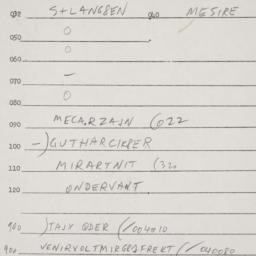 STLANGSEN 960 MESIRE
050 O
060 O
070 –
080 O
090 MECA.RZAJN (022
100 –)GUTHARCIKPER
110 MIRARTNIT (32
120 ONDERVANT.
900 )TAJY ODER (/004010
900 VENIRVOLTMIRGOJFREKT (/040080